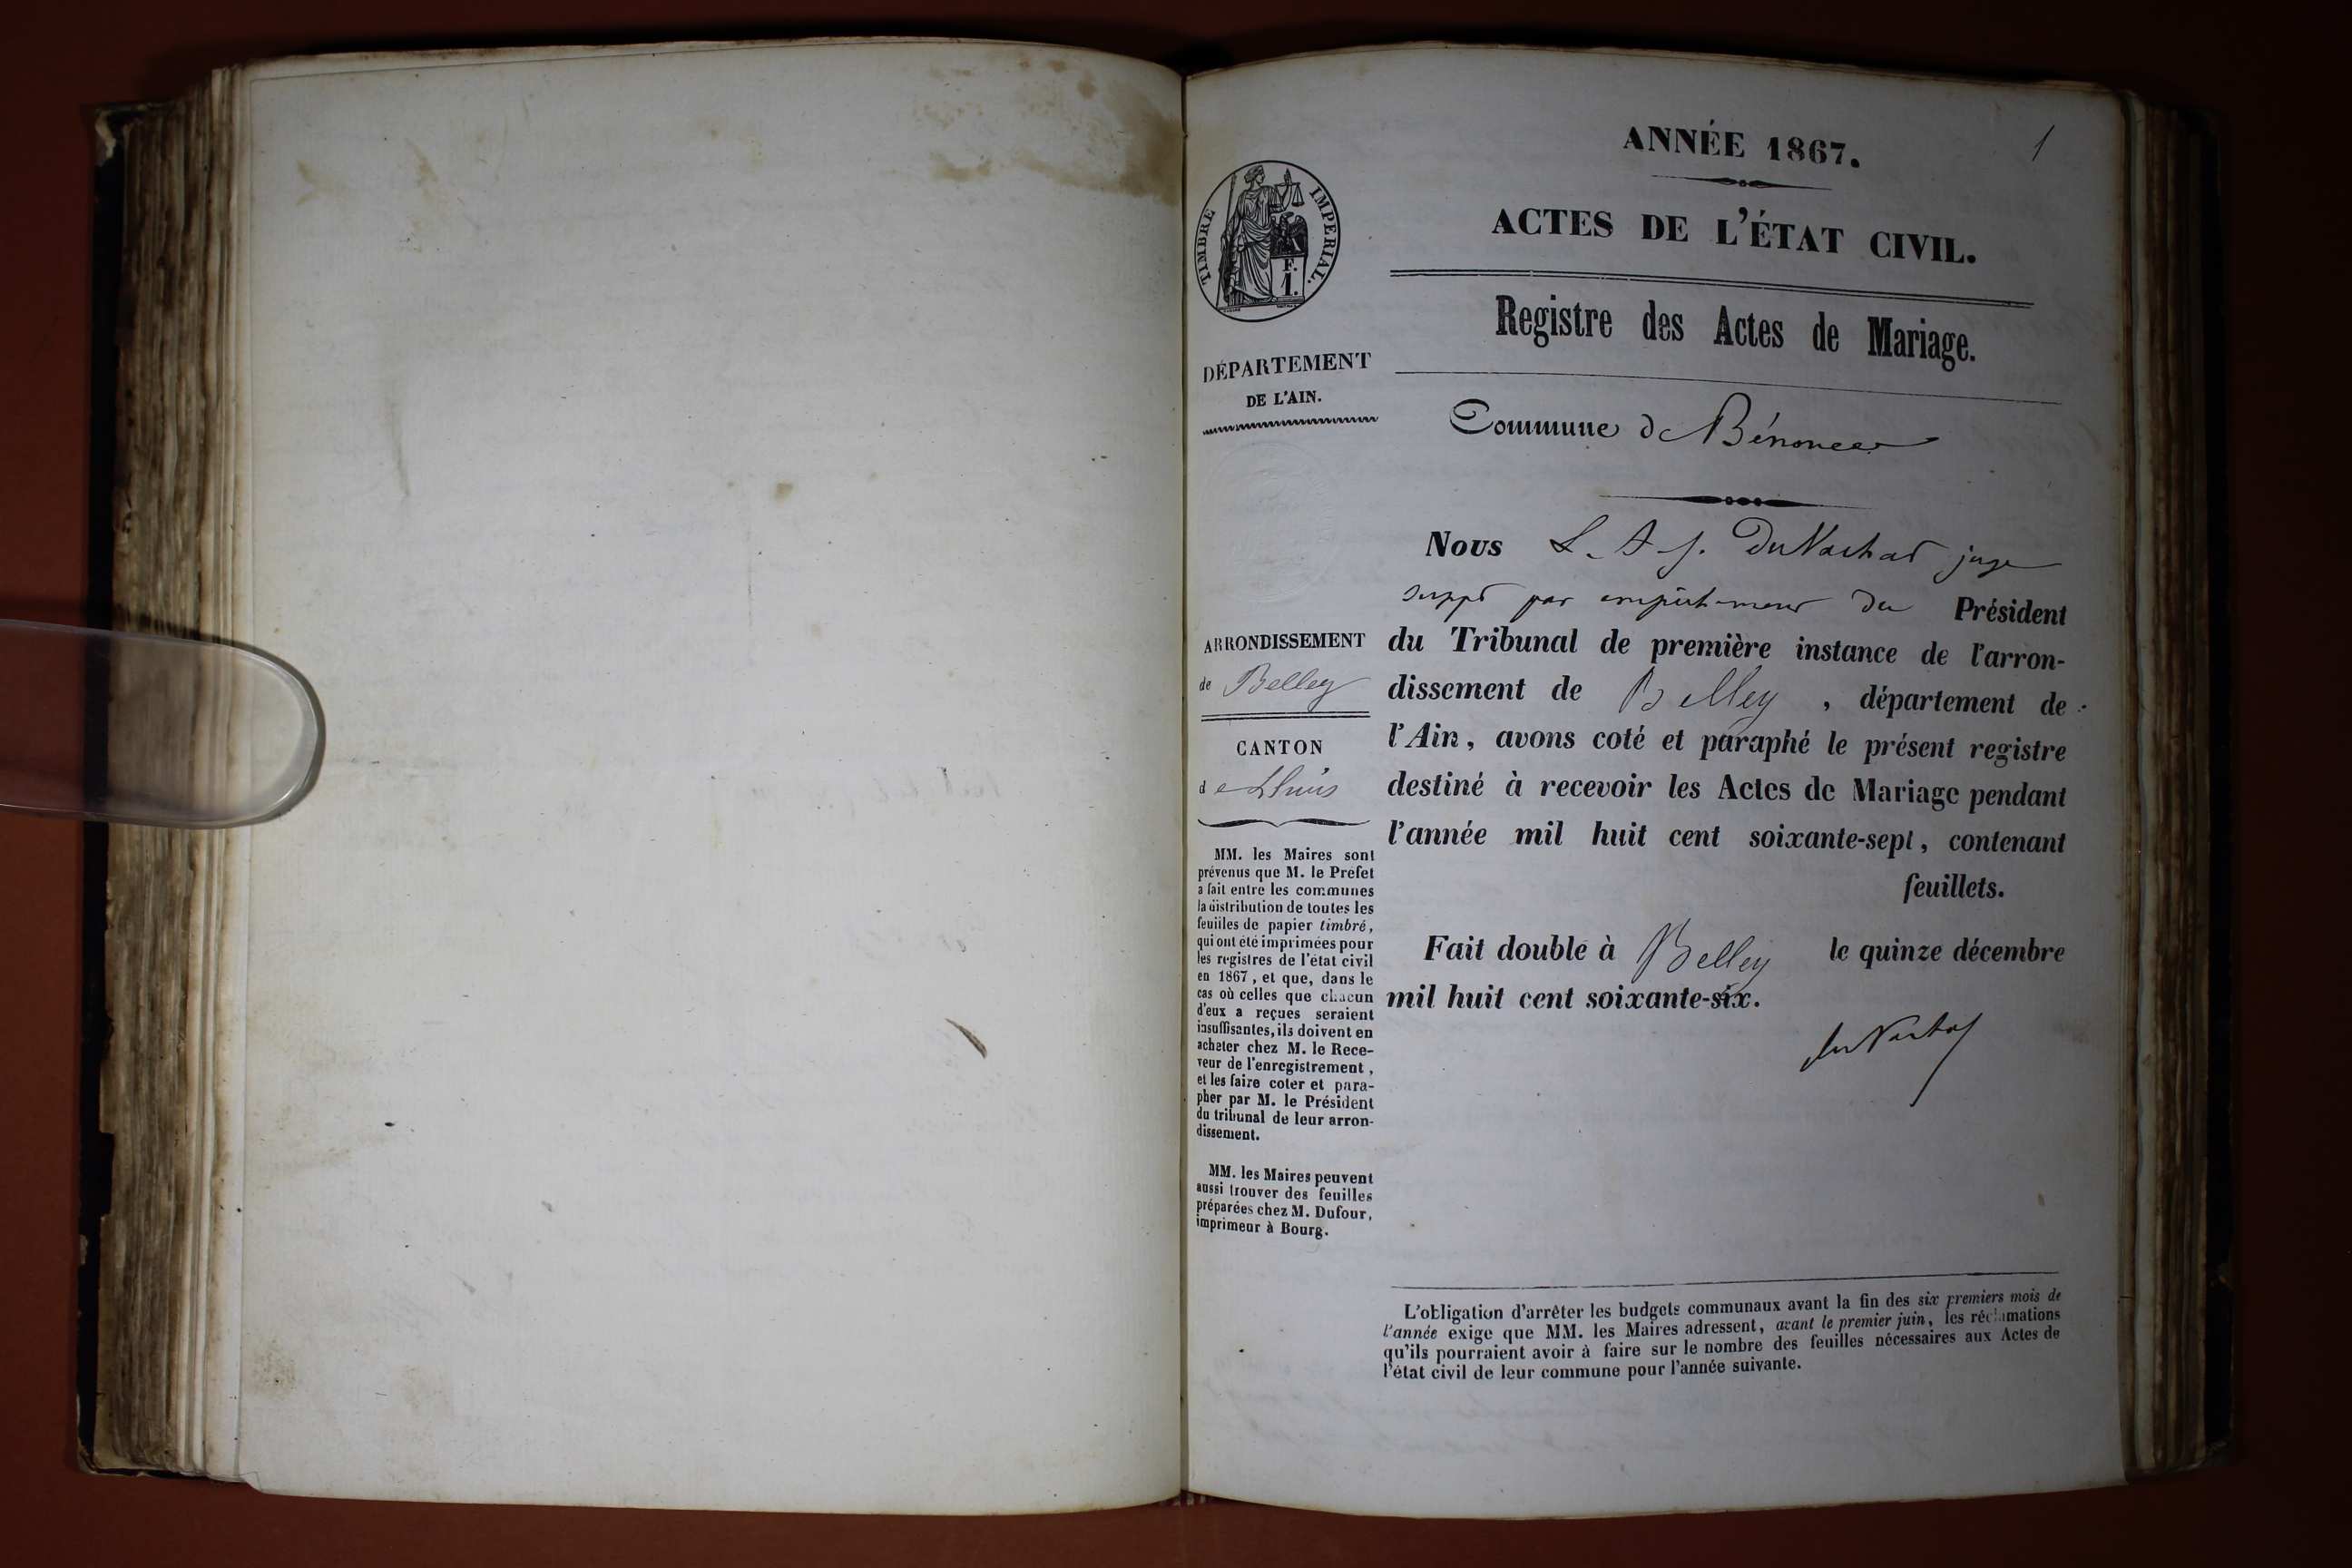 1
ANNÉE 1867.
ACTES DE L'ÉTAT CIVIL.
Registre des Actes de Mariage.
Commune de Bénonces
TIMBRE IMPERIAL.
F.
1.
DÉPARTEMENT
DE L'AIN.
ARRONDISSEMENT
de Belley
CANTON
de Lhuis
MM. les Maires sont
prévenus que M. le Préfet
a fait entre les communes
la distribution de toutes les
feuilles de papier timbré,
qui ont été imprimées pour
les registres de l'état civil
en 1867, et que, dans le
cas où celles que chacun
d'eux a reçues seraient
insuffisantes, ils doivent en
acheter chez M. le Rece-
veur de l'enregistrement,
et les faire coter et para-
pher par M. le Président
du tribunal de leur arron-
dissement.
MM. les Maires peuvent
aussi trouver des feuilles
préparées chez M. Dufour,
imprimeur à Bourg.
Nous L. A. J. juge
supp^t par empêchement du Président
du Tribunal de première instance de l'arron-
dissement de Belley, département de
l'Ain, avons coté et paraphé le présent registre
destiné à recevoir les Actes de Mariage pendant
l'année mil huit cent soixante-sept, contenant
feuillets.
Fait double à Belley le quinze décembre
mil huit cent soixante-six.
L'obligation d'arrêter les budgets communaux avant la fin des six premiers mois de
l'année exige que MM. les Maires adressent, avant le premier juin, les réclamations
qu'ils pourraient avoir à faire sur le nombre des feuilles nécessaires aux Actes de
l'état civil de leur commune pour l'année suivante.